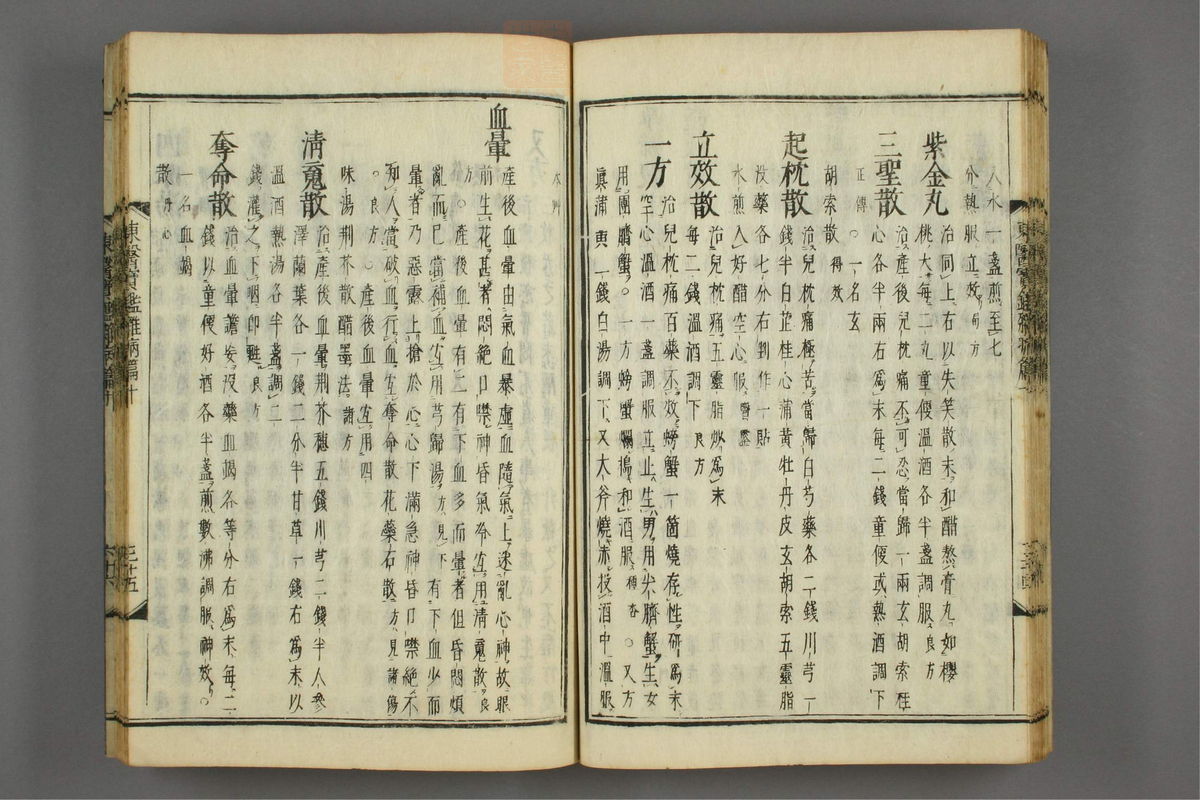 入水一盞煎至七
分熱服立效 局方
紫金丸
治同上右以失笑散末和醋熬膏丸如櫻
桃大每二丸童便溫酒各半盞調服 良方
三聖散
治産後兒枕痛不可忍當歸一兩玄胡索桂
心各半兩右爲末每二錢童便或熱酒調下
正傳○一名玄
胡索散 得效
起枕散
治兒枕痛極苦當歸白芍藥各二錢川芎一
錢半白芷桂心蒲黃牡丹皮玄胡索五靈脂
沒藥各七分右剉作一貼
水煎入好醋空心服 醫鑑
立效散
治兒枕痛五靈脂炒爲末
每二錢溫酒調下 良方
一方
治兒枕痛百藥不效螃蟹一箇燒存性研爲末
空心溫酒一盞調服立止生男用尖臍蟹生女
用團臍蟹○一方螃蟹爛搗和酒服 種杏○又方
眞蒲黃一錢白湯調下又大斧燒赤投酒中溫服
本草
血暈
産後血暈由氣血暴虛血隨氣上迷亂心神故眼
前生花甚者悶絶口噤神昏氣冷宜用清魂散 良
方○産後血暈有二有下血多而暈者但昏悶煩
亂而已當補血宜用芎歸湯 方見下有下血少而
暈者乃惡露上搶於心心下滿急神昏口噤絶不
知人當破血行血宜奪命散花藥石散 方見諸傷
○良方○産後血暈宜用四
味湯荊芥散醋墨法 諸方
清魂散
治産後血暈荊芥穗五錢川芎二錢半人參
澤蘭葉各一錢二分半甘草一錢右爲末以
溫酒熱湯各半盞調二
錢灌之下咽卽甦 良方
奪命散
治血暈譫妄沒藥血竭各等分右爲末每二
錢以童便好酒各半盞煎數沸調服神效○
一名血竭
散 丹心
東醫寶鑑雜病篇十
三十五